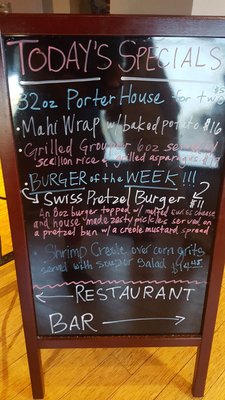 TODAY'S SPECIALS
32oz Porter House for two
Mahi Wrap w/ baked potato $16
Grilled Grouper 6oz served w/
scallion rice & grilled asparagus
BURGER of the WEEK!!!
Swiss Pretzel Burger $11
An 8oz burger topped w/ melted swiss cheese
and house made zesty pickles served on
a pretzel bun w/ a creole mustard spread
Shrimp Creole over corn grits
served with soup or salad $14.95
← RESTAURANT
BAR →